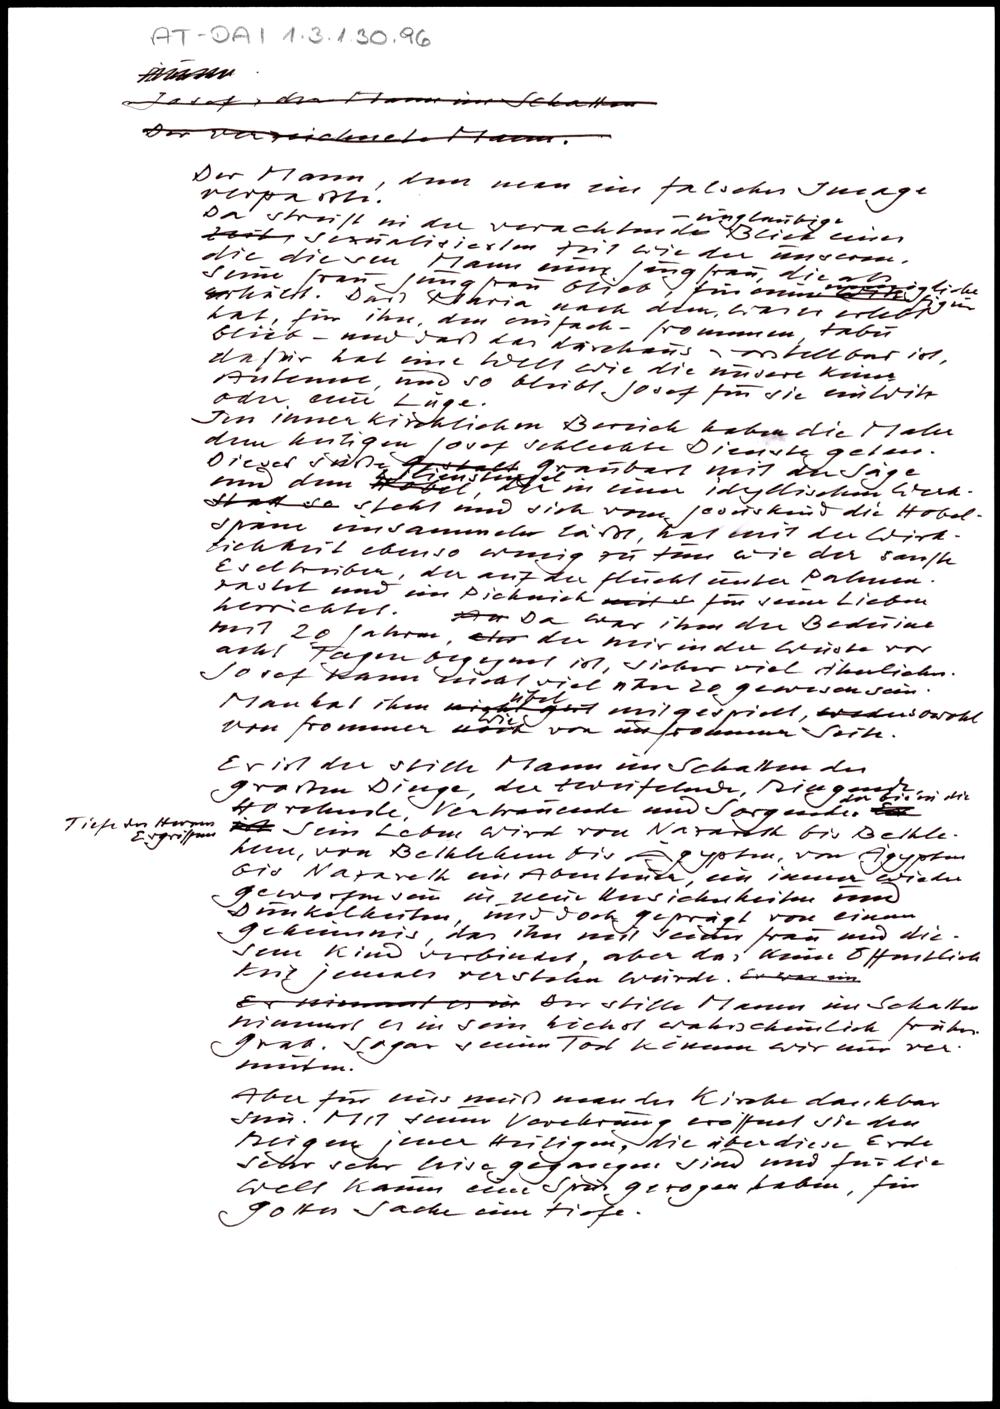 AT-DAI 1.3.1.30.96
Josef, der Mann im Schatten
Der verzeichnete Mann.
Der Mann, dem man ein falsches Image
verpaßte.
Da streift ihn der verachtende - ungläubige Blick einer
sexualisierten Zeit wie der unseren,
die diesen Mann einer Jungfrau, die als
seine Frau Jungfrau blieb, für eine unmögliche Figur
erhält. Daß Maria nach dem, was er erlebt
hat, für ihn, den einfach-frommen, tabu
blieb - und daß das durchaus vorstellbar ist,
dafür hat eine Welt wie die unsere keine
Antenne, und so bleibt Josef für sie ein Witz
oder eine Lüge.
Im innerkirchlichen Bereich haben die Maler
dem heiligen Josef schlechte Dienste getan.
Dieser süße Gestalt Graubart mit der Säge
und dem Hobel Lilienstengel, der in einer idyllischen Werk-
statt so steht und sich vom Jesuskind die Hobel-
späne einsammeln läßt, hat mit der Wirk-
lichkeit ebenso wenig zu tun wie der sanfte
Eseltreiber, der auf der Flucht unter Palmen
rastet und ein Picknick für seine Lieben
herrichtet. Da war ihm der Beduine
mit 20 Jahren, der mir in der Wüste vor
acht Tagen begegnet ist, sicher viel ähnlicher.
Josef kann nicht viel über 20 gewesen sein.
Man hat ihm nicht gut übel mitgespielt, sowohl
von frommer noch wie von unfrommer Seite.
Er ist der stille Mann im Schatten der
großen Dinge, der Zweifelnde, Ringende,
Horchende, Vertrauende und Sorgende, der bis in die
Tiefe des Herzens
Ergriffene
Sein Leben wird von Nazareth bis Bethle-
hem, von Bethlehem bis Ägypten, von Ägypten
bis Nazareth ein Abenteuer, ein immer wieder
Geworfensein in neue Unsicherheiten und
Dunkelheiten, und doch geprägt von einem
Geheimnis, das ihn mit seiner Frau und die-
sem Kind verbindet, aber das keine Öffentlich
keit jemals verstehn würde. Er war ein
Er nimmt es in Der stille Mann im Schatten
nimmt es in sein höchst wahrscheinlich frühes
Grab. Sogar seinen Tod können wir nur ver-
muten.
Aber für eins muß man der Kirche dankbar
sein. Mit seiner Verehrung eröffnet sie den
Reigen jener Heiligen, die über diese Erde
sehr sehr leise gegangen sind und für die
Welt kaum eine Spur gezogen haben, für
Gottes Sache eine tiefe.